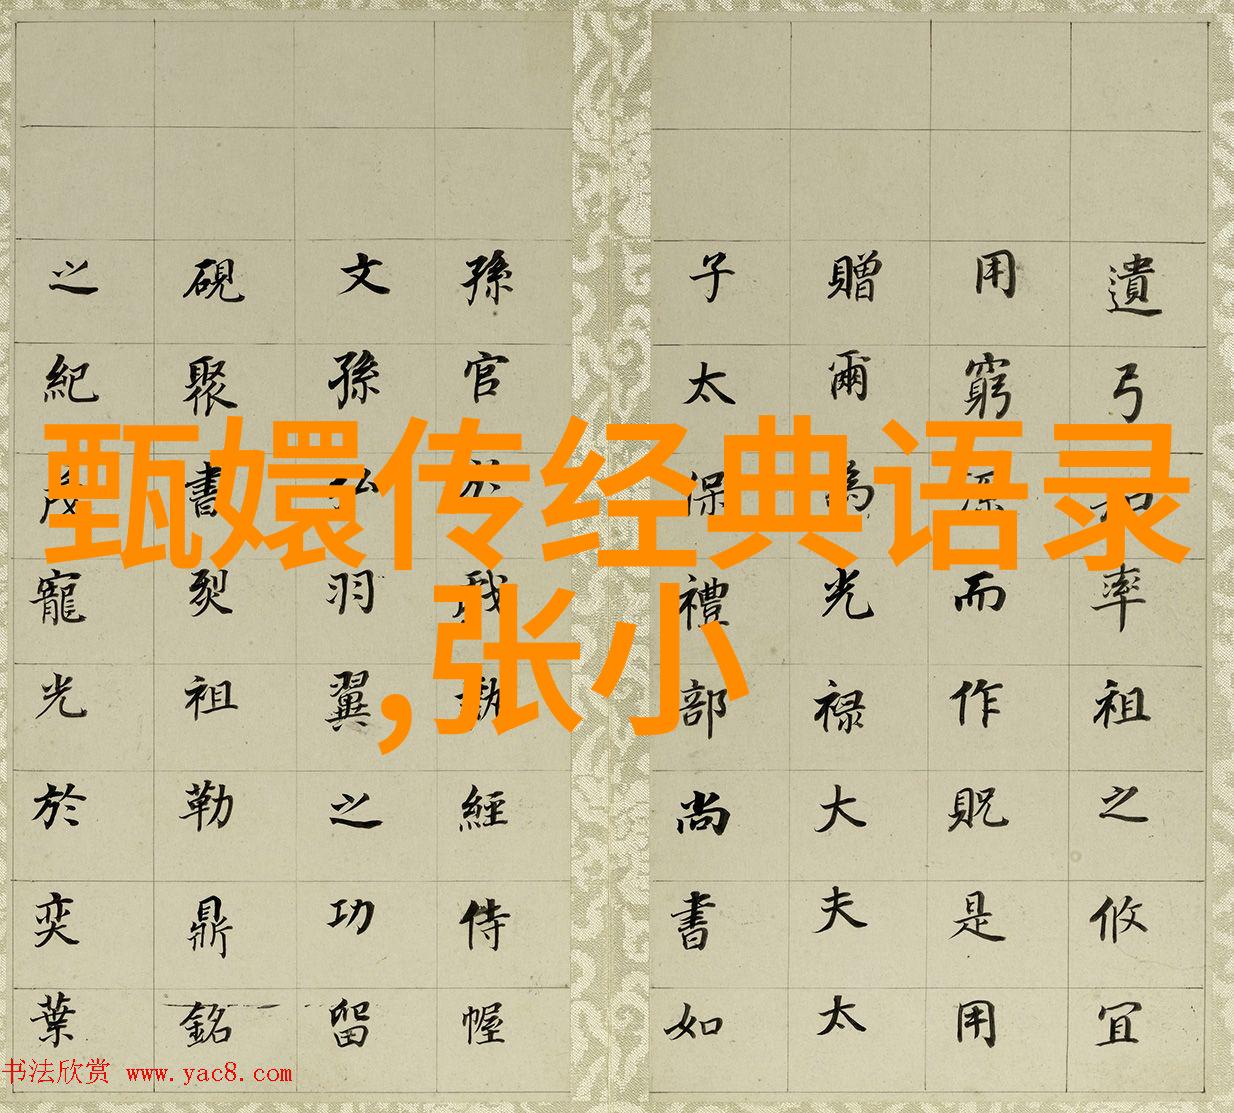 甄嬛传经典语录
,张小
遺弓率祖之攸宜
用窮而作貺是用
贈爾為光禄大夫太
子太保禮部尚書如
孫官於經侍幄
文孫弘羽翼之功留
硯聚書裂祖勒鼎銘
之紀茂寵光於奕葉
书法欣赏 www.yac8.com